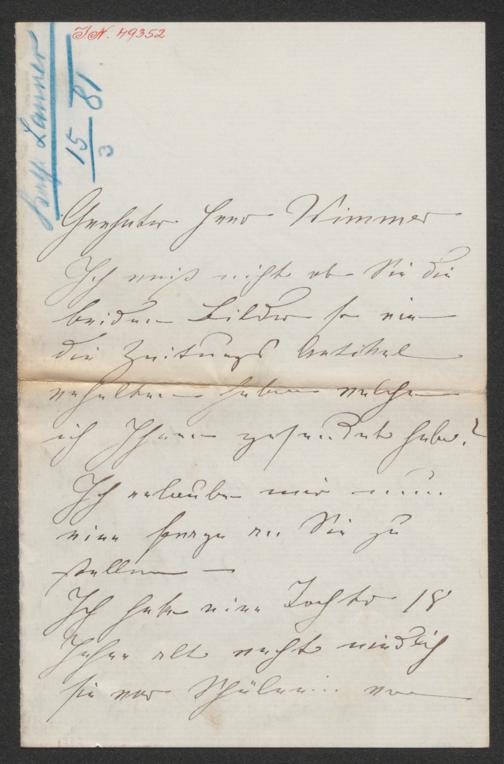 I.N. 49352
Lanner
15/3 81
Geehrter Herr Wimmer
Ich weiß nicht ob Sie die
beiden Bilder so wie
die Zeitungs Artikel
erhalten haben welche
ich Ihnen gesendet habe?
Ich erlaube mir nun
eine Frage an Sie zu
stellen –
Ich habe eine Tochter 18
Jahre alt recht niedlich
sie war Schülerin von